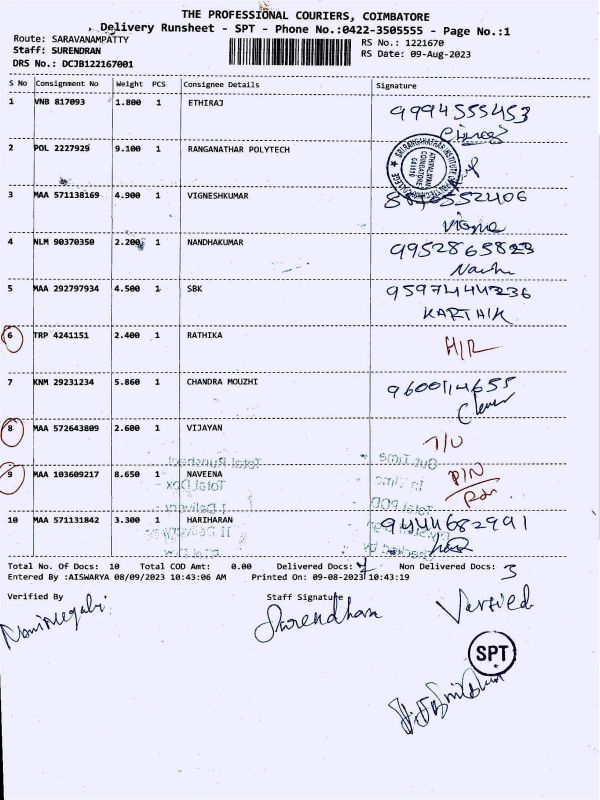 THE PROFESSIONAL COURIERS, COIMBATORE
Delivery Runsheet - SPT - Phone No.:0422-3505555 - Page No.:1
Route: SARAVANAMPATTY RS No.: 1221670
Staff: SURENDRAN RS Date: 09-Aug-2023
DRS No.: DCJB122167001
S No Consignment No Weight PCS Consignee Details Signature
1 VNB 817093 1.800 1 ETHIRAJ 9994555453
2 POL 2227929 9.100 1 RANGANATHAR POLYTECH
3 MAA 571138169 4.900 1 VIGNESHKUMAR
Vigne
4 NLM 90370350 2.200 1 NANDHAKUMAR 9952865823
5 MAA 292797934 4.500 1 SBK
KARTHIK
6 TRP 4241151 2.400 1 RATHIKA
7 KNM 29231234 5.860 1 CHANDRA MOUZHI 9600114655
8 MAA 572643809 2.600 1 VIJAYAN
9 MAA 103609217 8.650 1 NAVEENA
10 MAA 571131842 3.300 1 HARIHARAN 9444682991
Total No. Of Docs: 10 Total COD Amt: 0.00 Delivered Docs: 7 Non Delivered Docs: 3
Entered By :AISWARYA 08/09/2023 10:43:06 AM Printed On: 09-08-2023 10:43:19
Verified By Staff Signature Verified
Surendharn
SPT